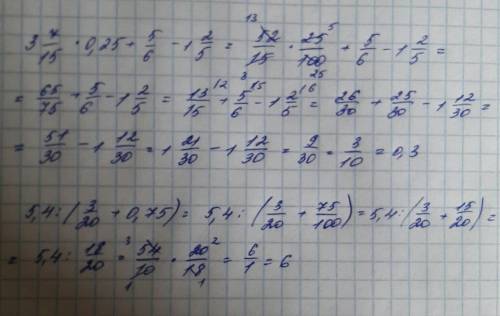 3 7/15 · 0,25 + 5/6 - 1 2/5 = 13 52/15 · 25/100 5 + 5/6 - 1 2/5 =
= 65/75 + 5/6 - 1 2/5 = 13/15 + 5/6 - 1 2/5 = 26/30 + 25/30 - 1 12/30 =
= 51/30 - 1 12/30 = 1 21/30 - 1 12/30 = 9/30 = 3/10 = 0,3
5,4 : (3/20 + 0,75) = 5,4 : (3/20 + 75/100) = 5,4 : (3/20 + 15/20) =
= 5,4 : 18/20 = 3 54/10 1 · 20/18 2 1 = 6/1 = 6